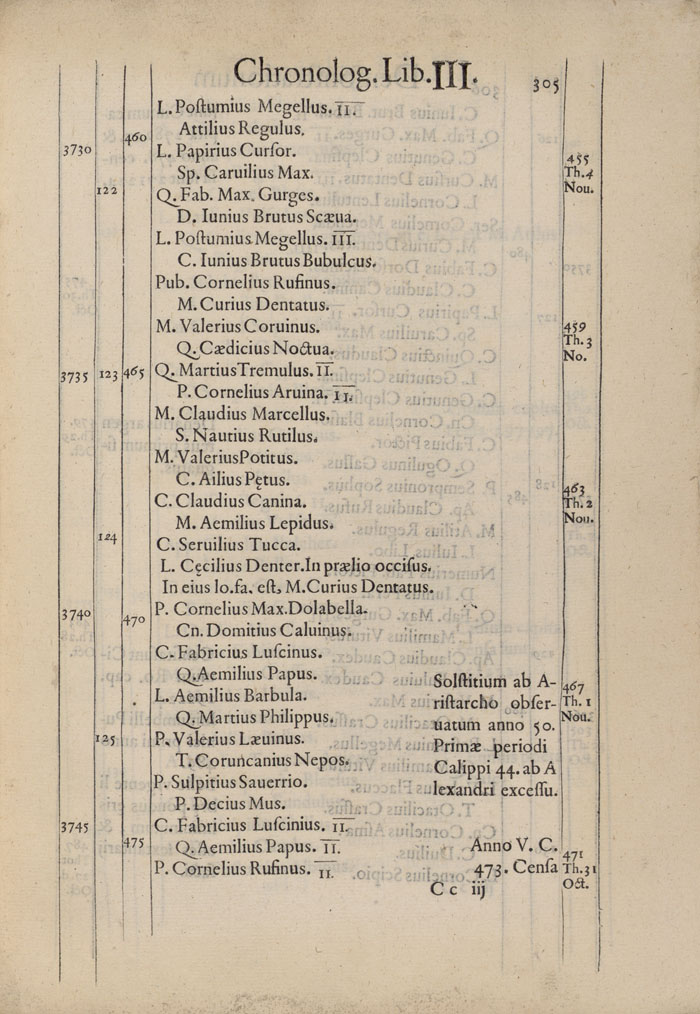 Chronolog. Lib. III. 305
L. Poſtumius Megellus. II.
460 Attilius Regulus.
3730 L. Papirius Curſor. 455
Sp. Caruilius Max. Th. 4
122 Q. Fab. Max. Gurges. Nou.
D. Iunius Brutus Scæua.
L. Poſtumius Megellus. III.
C. Iunius Brutus Bubulcus.
Pub. Cornelius Rufinus.
M. Curius Dentatus.
M. Valerius Coruinus. 459
Q. Cædicius Noctua. Th. 3
No.
3735 123 465 Q. Martius Tremulus. II.
P. Cornelius Aruina. II.
M. Claudius Marcellus.
S. Nautius Rutilus.
M. Valerius Potitus.
C. Ailius Pętus. 463
C. Claudius Canina. Th. 2
M. Aemilius Lepidus. Nou.
124 C. Seruilius Tucca.
L. Cęcilius Denter. In prælio occiſus.
In eius lo. fa. eſt, M. Curius Dentatus.
3740 P. Cornelius Max. Dolabella.
470 Cn. Domitius Caluinus.
C. Fabricius Luſcinus.
Q. Aemilius Papus. Solſtitium ab A- 467
L. Aemilius Barbula. riſtarcho obſer- Th. 1
Q. Martius Philippus. uatum anno 50. Nou.
125 P. Valerius Læuinus. Primæ periodi
T. Coruncanius Nepos. Calippi 44. ab A
P. Sulpitius Sauerrio. lexandri exceſſu.
P. Decius Mus.
3745 C. Fabricius Luſcinius. II.
475 Q. Aemilius Papus. II. Anno V. C. 471
P. Cornelius Rufinus. II. 473. Cenſa Th. 31
C c iij Oct.